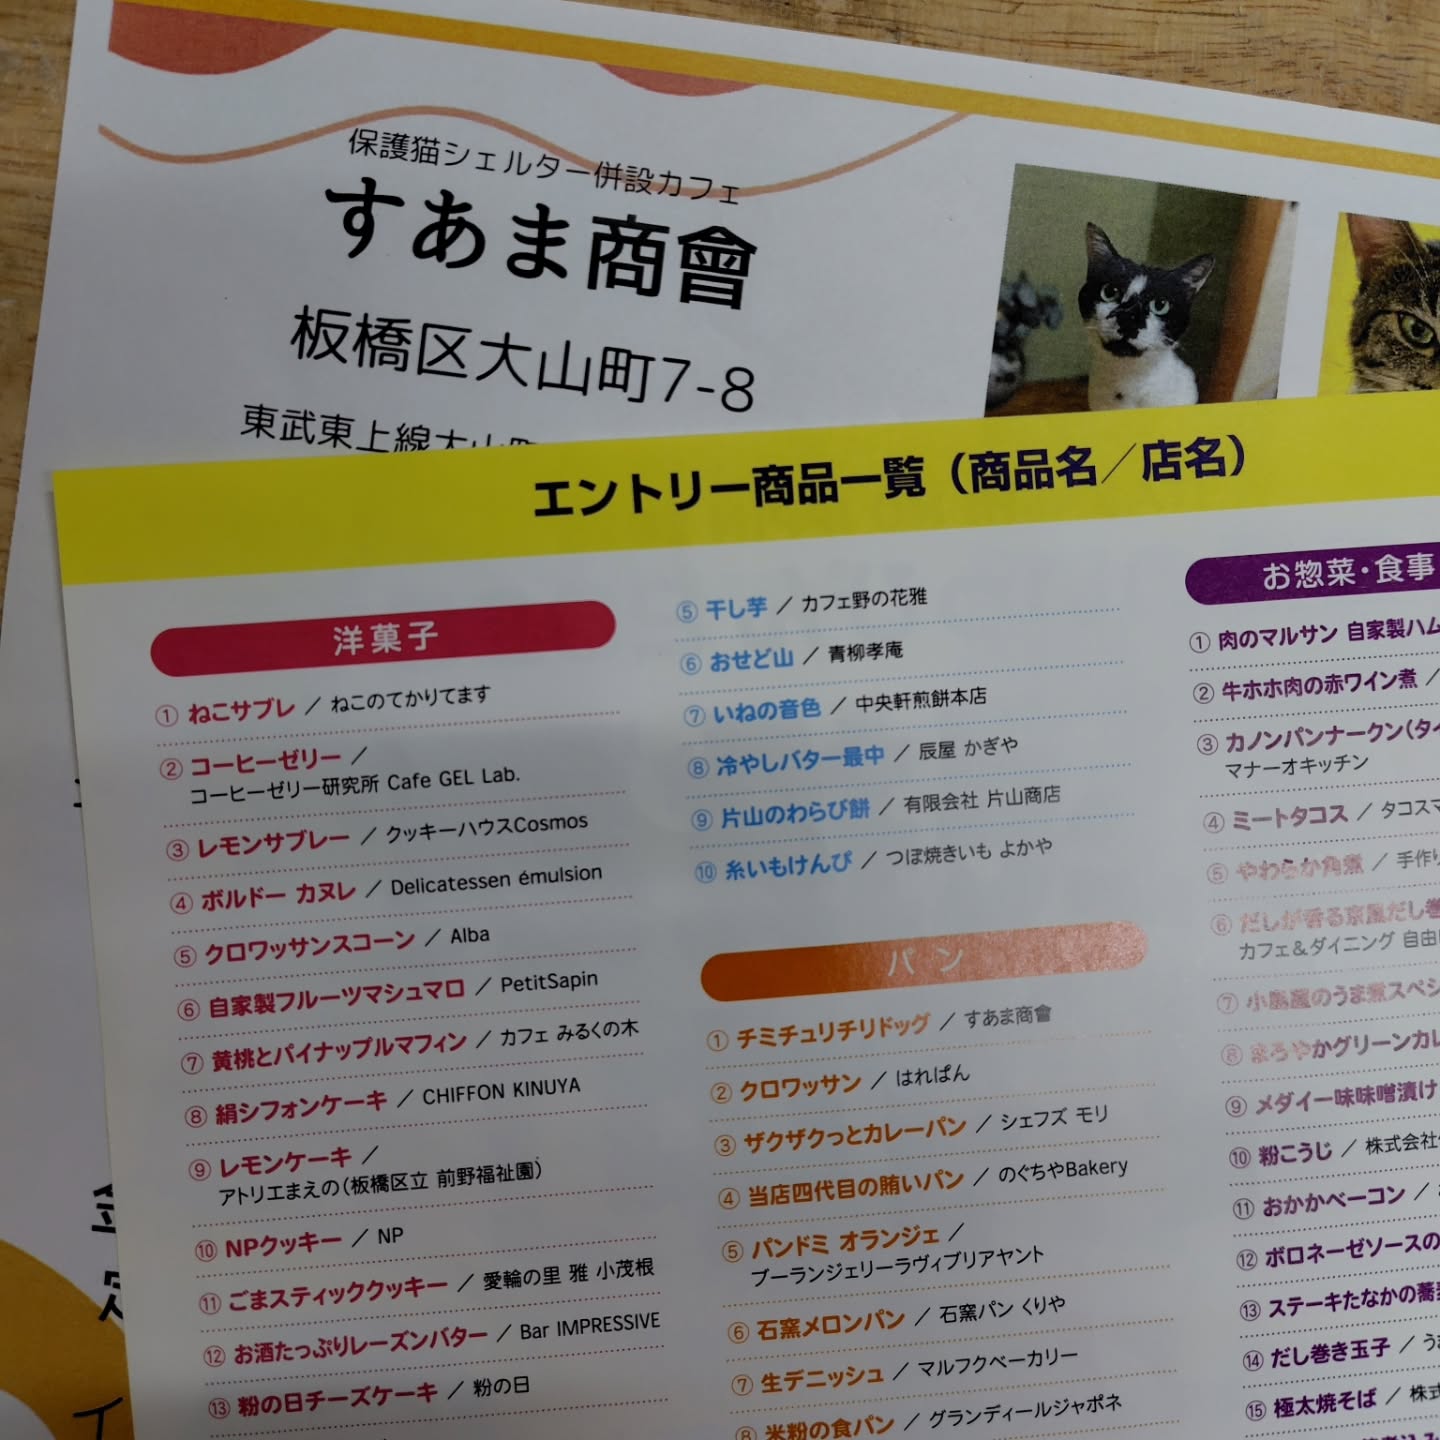 保護猫シェルター併設カフェ
すあま商會
板橋区大山町7-8
東武東上線大山町
エントリー商品一覧（商品名／店名）
洋菓子
① ねこサブレ ／ ねこのてかりてます
② コーヒーゼリー ／
コーヒーゼリー研究所 Cafe GEL Lab.
③ レモンサブレー ／ クッキーハウスCosmos
④ ボルドー カヌレ ／ Delicatessen émulsion
⑤ クロワッサンスコーン ／ Alba
⑥ 自家製フルーツマシュマロ ／ PetitSapin
⑦ 黄桃とパイナップルマフィン ／ カフェ みるくの木
⑧ 絹シフォンケーキ ／ CHIFFON KINUYA
⑨ レモンケーキ ／
アトリエまえの（板橋区立 前野福祉園）
⑩ NPクッキー ／ NP
⑪ ごまスティッククッキー ／ 愛輪の里 雅 小茂根
⑫ お酒たっぷりレーズンバター ／ Bar IMPRESSIVE
⑬ 粉の日チーズケーキ ／ 粉の日
⑤ 干し芋 ／ カフェ野の花雅
⑥ おせど山 ／ 青柳孝庵
⑦ いねの音色 ／ 中央軒煎餅本店
⑧ 冷やしバター最中 ／ 辰屋 かぎや
⑨ 片山のわらび餅 ／ 有限会社 片山商店
⑩ 糸いもけんぴ ／ つぼ焼きいも よかや
パン
① チミチュリチリドッグ ／ すあま商會
② クロワッサン ／ はれぱん
③ ザクザクっとカレーパン ／ シェフズ モリ
④ 当店四代目の賄いパン ／ のぐちやBakery
⑤ パンドミ オランジェ ／
ブーランジェリーラヴィブリアヤント
⑥ 石窯メロンパン ／ 石窯パン くりや
⑦ 生デニッシュ ／ マルフクベーカリー
⑧ 米粉の食パン ／ グランディールジャポネ
お惣菜・食事
① 肉のマルサン 自家製ハム
② 牛ホホ肉の赤ワイン煮 ／
③ カノンパンナークン（タイ
マナーオキッチン
④ ミートタコス ／ タコスマ
⑤ やわらか角煮 ／ 手作り
⑥ だしが香る京風だし巻
カフェ＆ダイニング 自由
⑦ 小島屋のうま煮スペシ
⑧ まろやかグリーンカレ
⑨ メダイ一味味噌漬け
⑩ 粉こうじ ／ 株式会社
⑪ おかかベーコン ／
⑫ ボロネーゼソースの
⑬ ステーキたなかの蕎
⑭ だし巻き玉子 ／ う
⑮ 極太焼そば ／ 株式